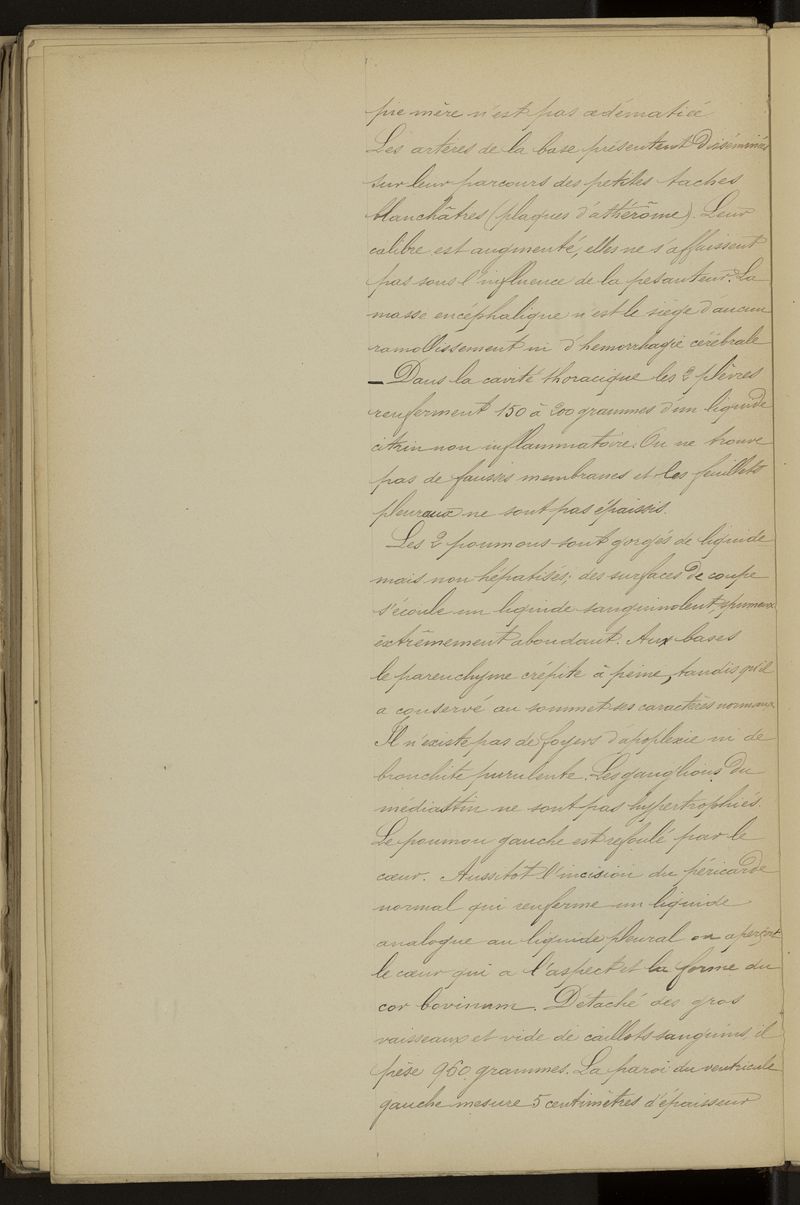 pie mère n'est pas œdématiée
Les artères de la base présentent disséminées
sur leur parcours des petites taches
blanchâtres (plaques d'athérôme). Leur
calibre est augmenté, elles ne s'affaissent
pas sous l'influence de la pesanteur. La
masse encéphalique n'est le siège d'aucun
ramollissement ni d'hemorrhagie cérébrale
— Dans la cavité thoracique les 2 plèvres
renferment 150 à 200 grammes d'un liquide
citrin non inflammatoire. On ne trouve
pas de fausses membranes et les feuillets
pleuraux ne sont pas épaissis.
Les 2 poumons sont gorgés de liquide
mais non hépatisés; des surfaces de coupe
s'écoule un liquide sanguinolent, spumeux
extrêmement abondant. Aux bases
le parenchyme crépite à peine, tandis qu'il
a conservé au sommet ses caractères normaux
Il n'existe pas de foyers d'apoplexie ni de
bronchite purulente. Les ganglions du
médiastin ne sont pas hypertrophiés.
Le poumon gauche est refoulé par le
cœur. Aussitot l'incision du péricarde
normal qui renferme un liquide
analogue au liquide pleural on aperçoit
le cœur qui a l'aspect et la forme du
cor bovinum. Détaché des gros
vaisseaux et vide de caillots sanguins, il
pèse 960 grammes. La paroi du ventricule
gauche mesure 5 centimètres d'épaisseur